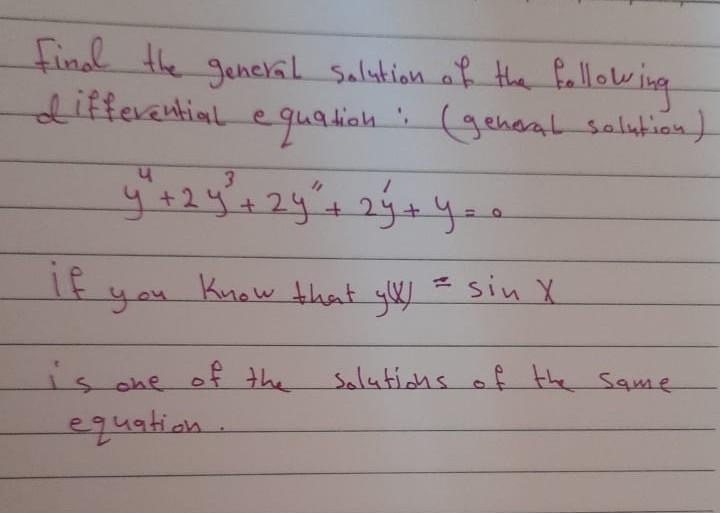 Find the general solution of the following
differential equation : (general solution)
y⁴ + 2y³ + 2y" + 2y' + y = 0
if you know that y(x) = sin x
is one of the solutions of the same
equation.